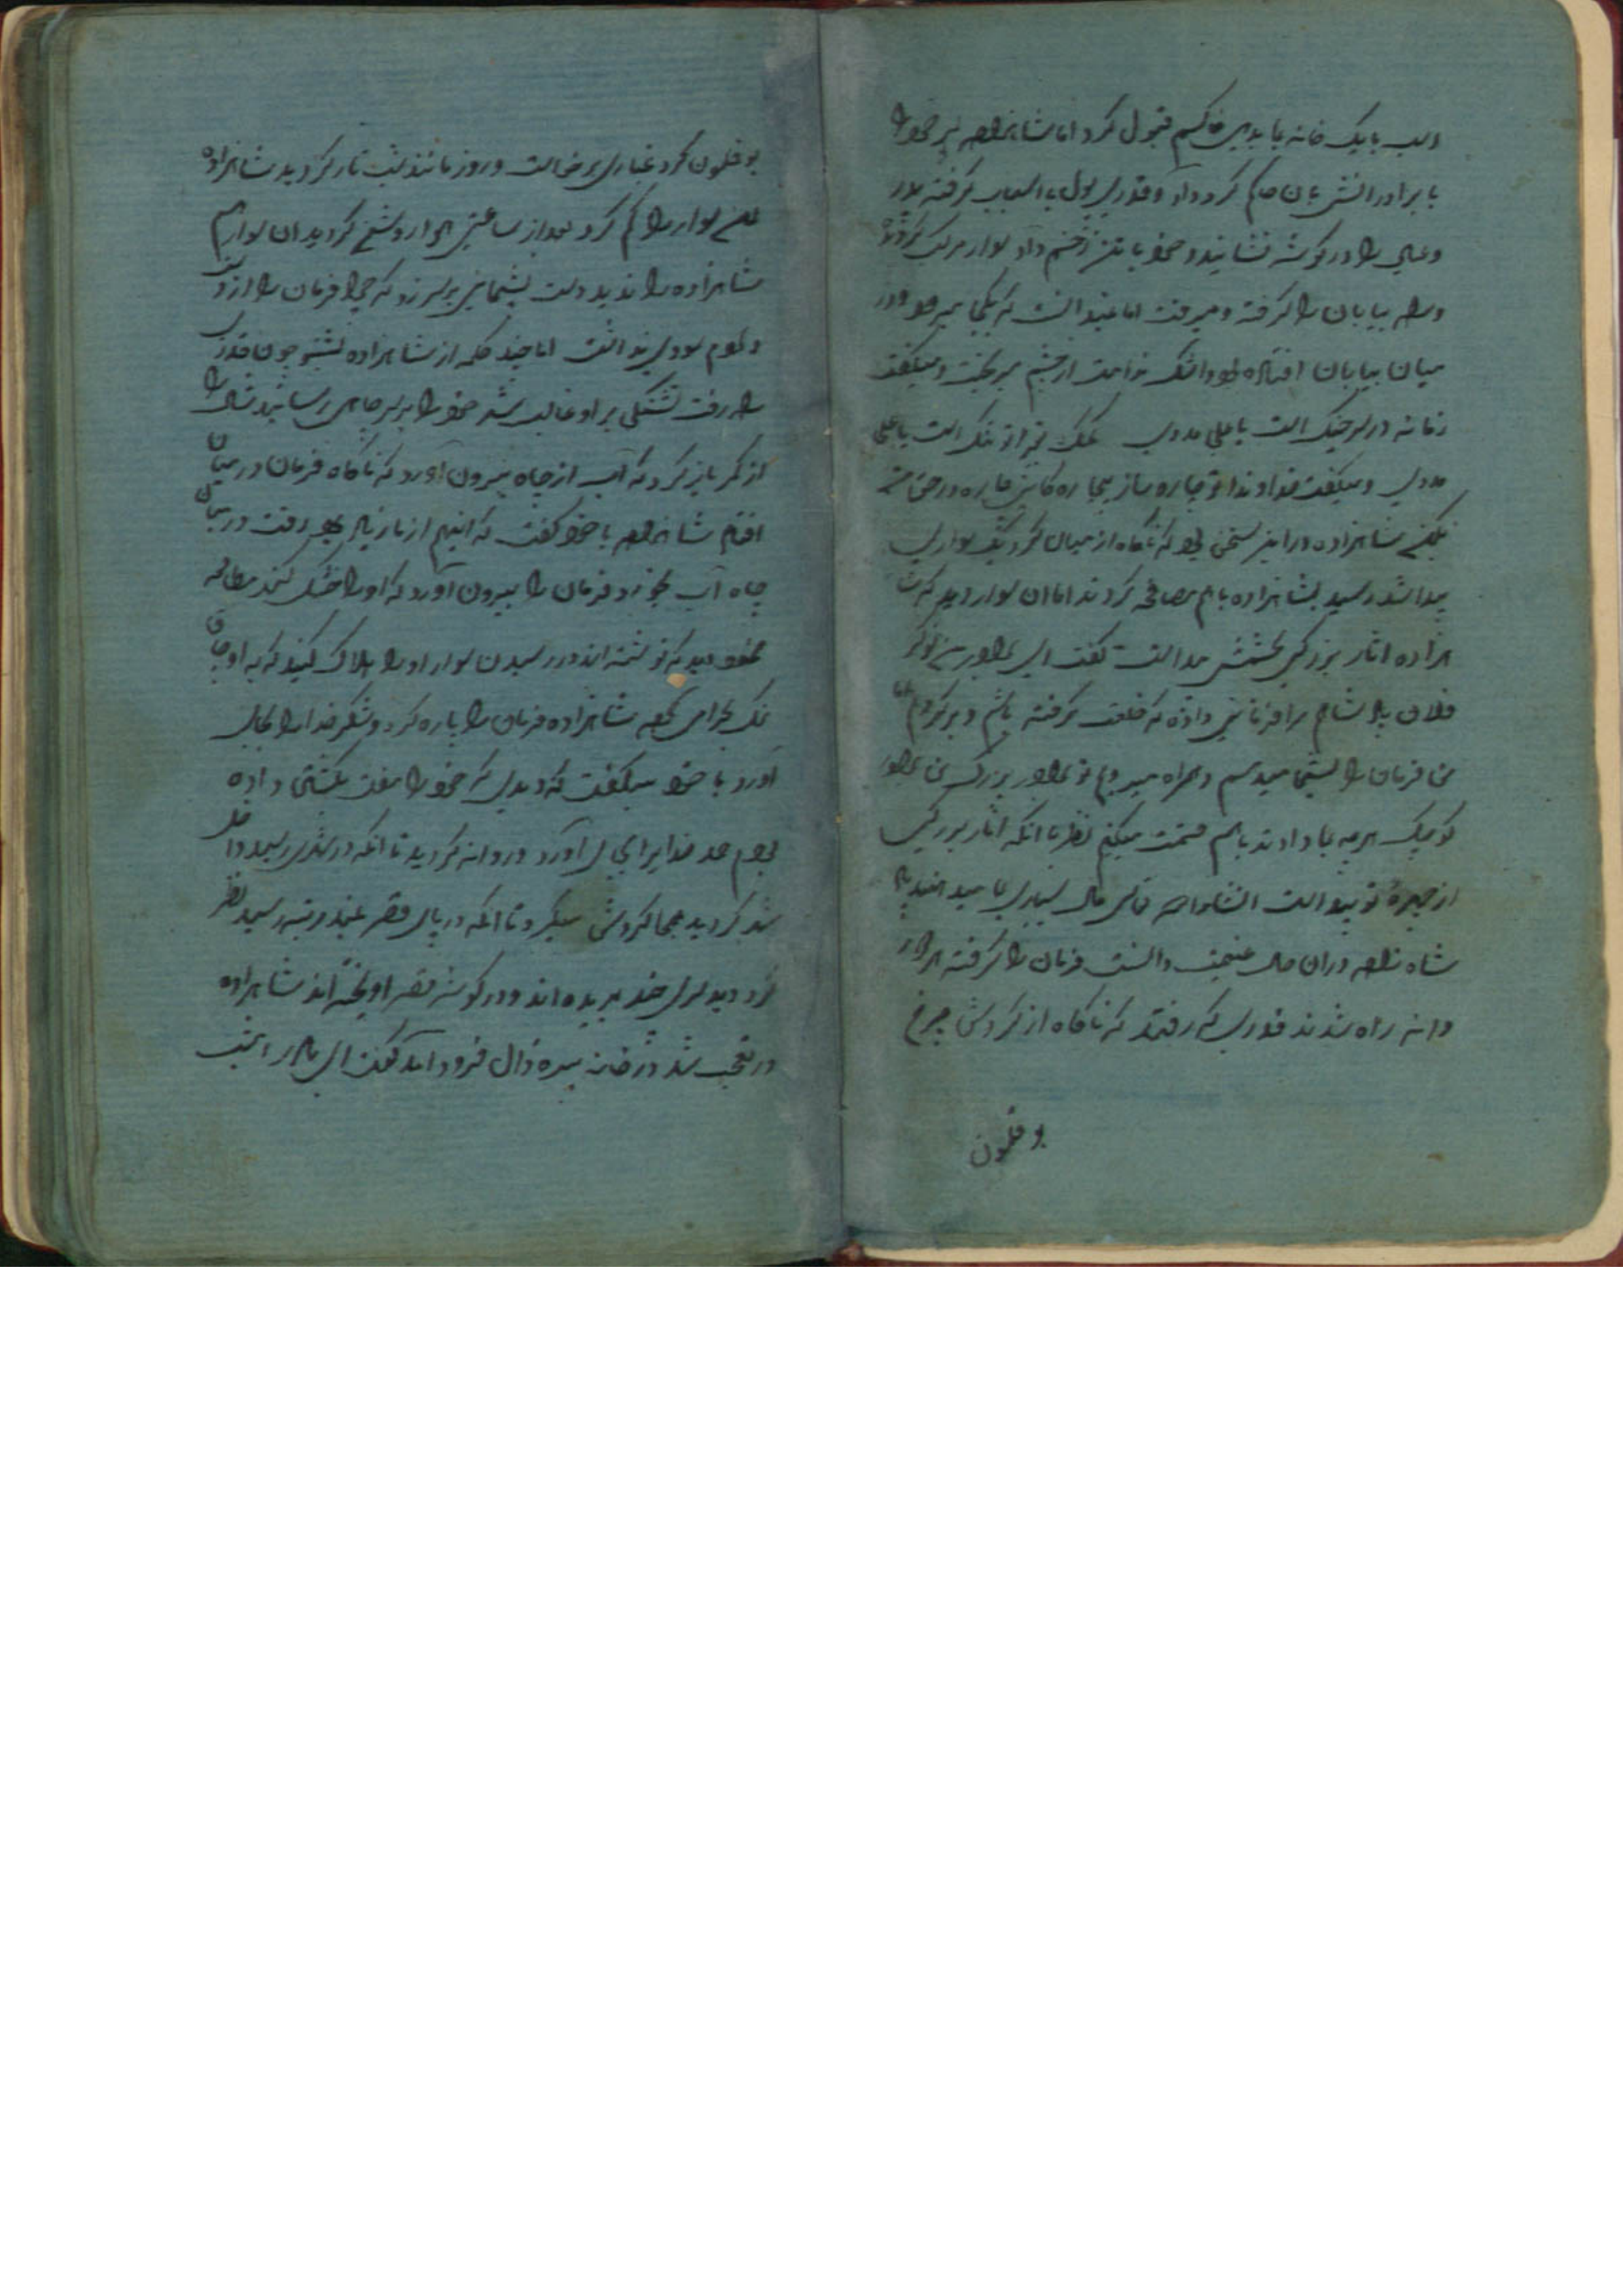 اسب با یک خانه بما بدهی حاکم قبول کرد اما شاهزاده پسر خود را
با برادرانش بآن حاکم کرد داد و قدری پول با اسباب گرفته مادر
و عیال را در گوشه نشانید و خود با تن زخم دار سوار مرکب گردیده
و راه بیابان را گرفته و میرفت اما نمیدانست که بکجا میرود در
میان بیابان افتاده بود و اشک ندامت از چشم میریخت و میگفت
زمانه بر سر جنگ است یا علی مددی کمک ز غیر تو ننگ است یا علی
مددی و میگفت خداوندا تو چاره ساز بیچاره کانی چاره در حق من
بکن شاهزاده در این سخن بود که ناگاه از میان گرد یک سواری
پیدا شد رسید بشاهزاده باهم مصافحه کردند اما آن سوار دید که شا
هزاده آثار بزرگی بخشش پیدا است گفت ای برادر من نوکر
فلان پادشاهم مرا فرمانی داده که خلعت گرفته باشم و برگردم اما
من فرمان را بشما میدهم و همراه میروم تو برادر بزرگ من برادر
کوچک هرچه بما دادند باهم قسمت میکنیم نظر بآنکه آثار بزرگی
از چهره تو پیدا است انشاءالله تعالی مال بسیاری بما میدهند
شاهزاده در آن حال غنیمت دانست فرمان را گرفته هر دو رو
وانه راه شدند قدری که رفتند که ناگاه از گردش چرخ
بوقلمون
بوقلمون گرد غباری برخاست و روز مانند شب تار گردید شاهزاده
آن سوار را گم کرد بعد از ساعتی هوا روشن گردید آن سوار هم
شاهزاده را ندید دست پشیمانی بر سر زد که چرا فرمان را از دست
دادم سودی نداشت اما چند کلمه از شاهزاده بشنو چون قدری
راه رفت تشنگی بر او غالب شد خود را بر سر چاهی رسانید شال را
از کمر باز کرد که آب از چاه بیرون آورد که ناگاه فرمان در میان
افتاد شاهزاده با خود گفت که اینهم از ما زیاد بود رفت در میان
چاه آب بخورد و فرمان را بیرون آورد که او را خشک کند مطالعه
نمود دید که نوشته اند در رسیدن سوار او را هلاک کنید که به اوجاق
نمک بحرامی کرده شاهزاده فرمان را پاره کرد و شکر خدا را بجای
آورد با خود میگفت که دیدی که خود را مفت بکشتن داده
بودم حمد خدا را بجای آورد و روانه گردید تا آنکه در شهری رسید داخل
شهر گردید بهمه جا گردش میکرد تا آنکه در پای قصر بلند مرتبه رسید نظر
کرد دید سری چند بریده اند و در گوشه قصر آویخته اند شاهزاده
در تعجب شد در خانه پیره زال فرود آمد گفت ای مادر امشب